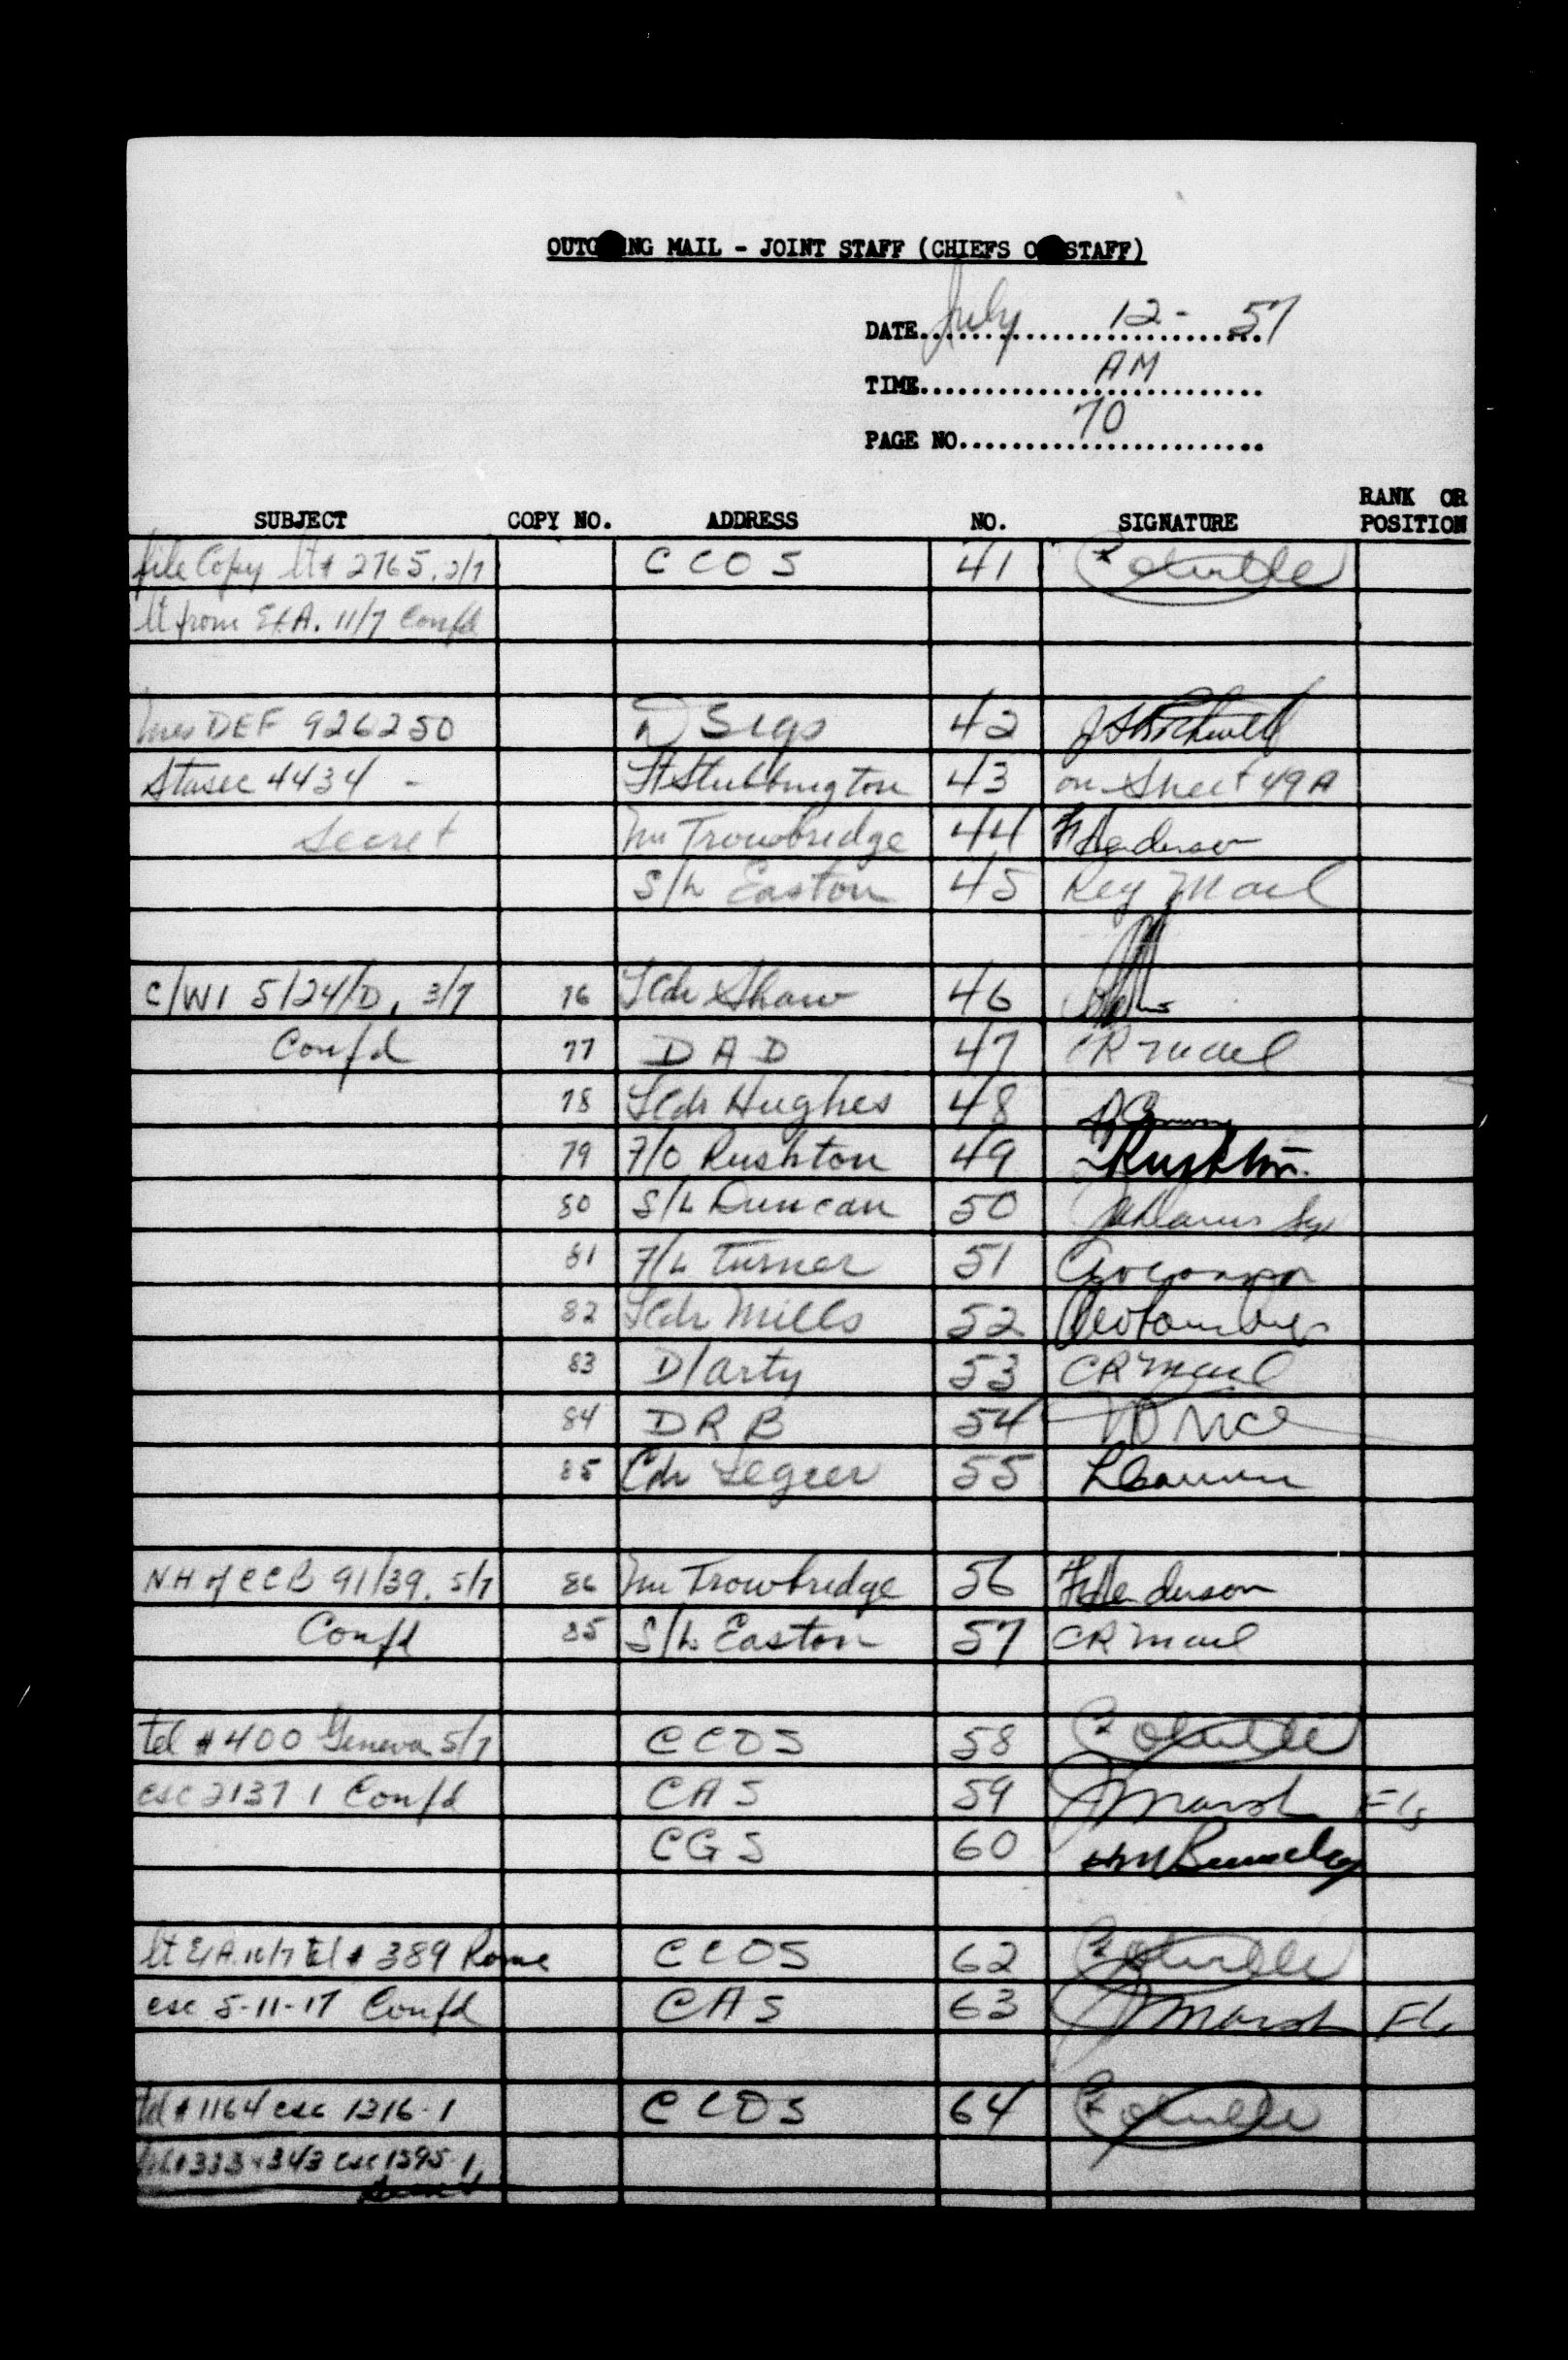 OUTGOING MAIL - JOINT STAFF (CHIEFS OF STAFF)
DATE July 12 - 57
TIME AM
PAGE NO. 70
SUBJECT COPY NO. ADDRESS NO. SIGNATURE RANK OR POSITION
file Copy lt # 2765, 2/7 CCOS 41
lt from E+A. 11/7 Confd
mes DEF 926250 D Sigs 42
Stasec 4434 - Lt Stubbington 43 on Sheet 49A
Secret Mr Trowbridge 44 Henderson
S/L Easton 45 Reg Mail
C/WI 5/24/D, 3/7 76 Lcdr Shaw 46
Confd 77 DAD 47 CR Mail
78 Lcdr Hughes 48
79 F/O Rushton 49 Rushton
80 S/L Duncan 50
81 F/L Turner 51
82 Lcdr Mills 52
83 D/Arty 53 CR Mail
84 DRB 54
85 Cdr Legeer 55
N.H of CCB 91/39, 5/7 86 Mr Trowbridge 56 Henderson
Confd 85 S/L Easton 57 CR Mail
tel # 400 Geneva 5/7 CCOS 58
csc 2137 1 Confd CAS 59 Marsh
CGS 60
lt E/A. 10/7 tel # 389 Rome CCOS 62
csc 5-11-17 Confd CAS 63 Marsh
tel # 1164 csc 1316-1 CCOS 64
333 + 343 csc 1395-1,